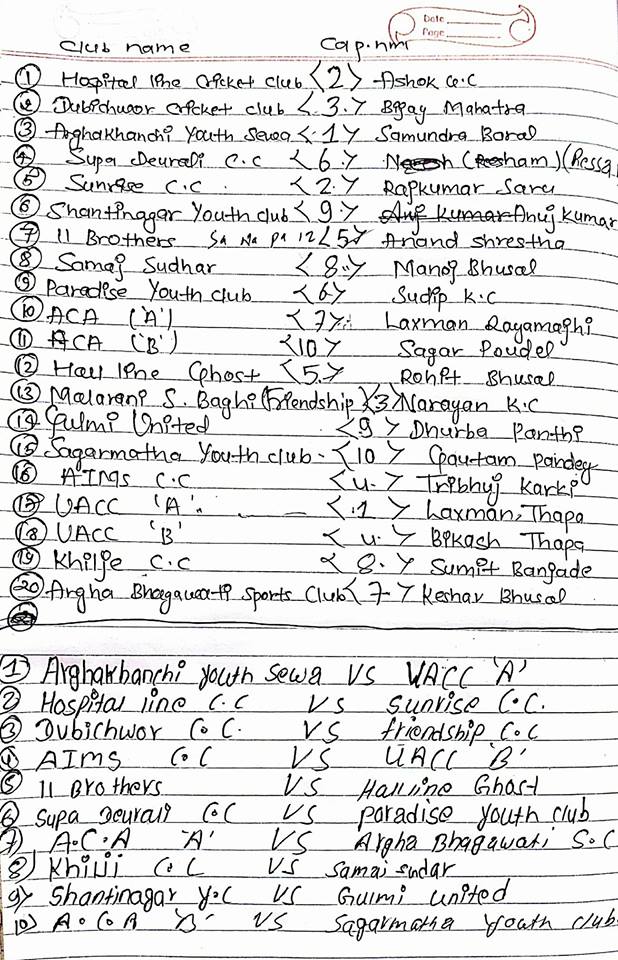 Date
Page
Club name Cap. nme
1 Hospital line Cricket club <2> Ashok G.C
2 Dubichwor cricket club <3.> Bijay Mahatra
3 Arghakhanchi Youth Sewa <.1> Samundra Boral
4 Supa Deurali C.C <6.> (Resham)
5 Sunrise C.C. <2.> Rajkumar Saru
6 Shantinagar Youth club <9> Anuj Kumar Anuj Kumar
7 11 Brothers Sa Na Pa 12 <5> Anand Shrestha
8 Samaj Sudhar <8.> Manoj Bhusal
9 Paradise Youth club <6> Sudip K.C
10 ACA ('A') <7> Laxman Rayamajhi
11 ACA ('B') <10> Sagar Poudel
12 Hall line Ghost <5.> Rohit Bhusal
13 Malarani S. Baghi (Friendship) <3> Narayan K.C
14 Gulmi United <9> Dhurba Panthi
15 Sagarmatha Youth club - <10> Gautam Pandey
16 AIMs C.C <4.> Tribhuj Karki
17 UACC 'A'. <.1> Laxman, Thapa
18 UACC 'B' <4.> Bikash Thapa
19 Khilje C.C <8.> Sumit Banjade
20 Argha Bhagawati Sports Club <7-> Keshav Bhusal
1) Arghakhanchi Youth Sewa VS UACC 'A'
2 Hospital line C.C VS Sunrise C.C.
3 Dubichwor C.C. VS friendship C.C
4 AIMS C.C VS UACC 'B'
5 11 Brothers VS Hall line Ghost
6 Supa Deurali C.C VS Paradise Youth club
7) A.C.A 'A' VS Argha Bhagawati S.C
8) Khilji C.C VS Samaj Sudar
9) Shantinagar Y.C VS Gulmi United
10) A.C.A 'B' VS Sagarmatha Youth club.